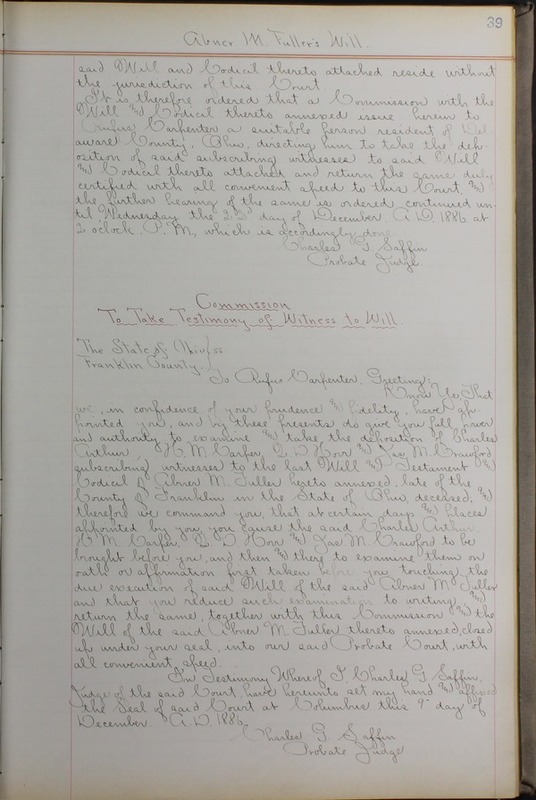 39
Abner M. Fuller's Will.
said Will and Codical thereto attached reside without
the jurisdiction of this Court
It is therefore ordered that a Commission with the
Will & Codical thereto annexed issue herein to
Rufus Carpenter a suitable person resident of Del-
aware County, Ohio, directing him to take the dep-
osition of said subscribing witnesses to said Will
& Codical thereto attached and return the same duly
certified with all convenient speed to this Court, &
the further hearing of the same is ordered continued un-
til Wednesday the 22d day of December A.D. 1886 at
2 o'clock P.M., which is accordingly done
Charles G. Saffin
Probate Judge.
Commission
To Take Testimony of Witness to Will.
The State of Ohio, ss
Franklin County.
To Rufus Carpenter, Greeting:
Know Ye, That
we, in confidence of your prudence & fidelity, have ap-
pointed you, and by these presents do give you full power
and authority to examine & take, the deposition of Charles
Arthur, H. M. Carper, L. D. Horr & Jas. M. Crawford
subscribing witnesses to the last Will & Testament &
Codical of Abner M. Fuller hereto annexed, late of the
County of Franklin in the State of Ohio, deceased, &
therefore we command you, that at certain days & places
appointed by you, you cause the said Charles Arthur
H. M. Carper, L. D. Horr & Jas. M. Crawford to be
brought before you, and then & there to examine them on
oath or affirmation first taken before you touching the
due execution of said Will of the said Abner M. Fuller
and that you reduce such examination to writing, &
return the same, together with this Commission & the
Will of the said Abner M. Fuller thereto annexed, closed
up under your seal, into our said Probate Court, with
all convenient speed.
In Testimony Whereof I, Charles G. Saffin,
Judge of the said Court, have hereunto set my hand & affixed
the Seal of said Court at Columbus this 9" day of
December. A.D. 1886.
Charles G. Saffin
Probate Judge